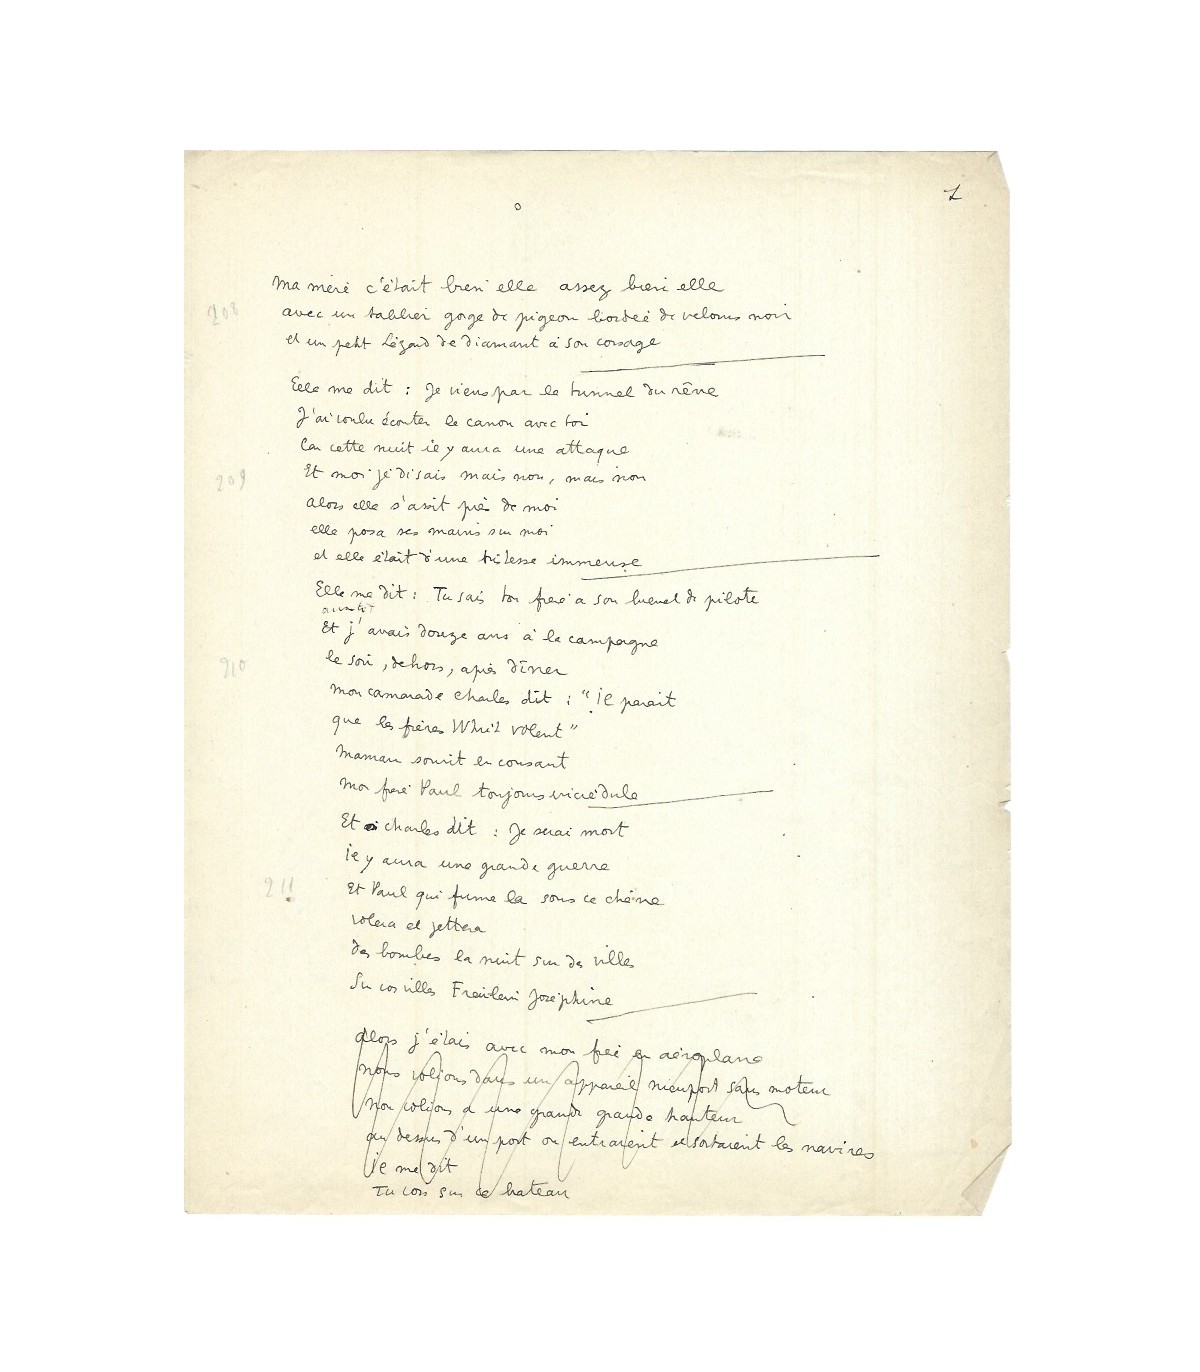 1
Ma mère c'était bien elle assez bien elle
208
avec un tablier gorge de pigeon bordée de velours noir
et un petit Lézard de diamant à son corsage
Elle me dit : Je viens par le tunnel du rêve
J'ai voulu écouter le canon avec toi
Car cette nuit il y aura une attaque
209
Et moi je disais mais non, mais non
alors elle s'assit près de moi
elle posa ses mains sur moi
et elle était d'une tristesse immense
Elle me dit : Tu sais ton frère a son brevet de pilote
Et j'avais douze ans à la campagne
210
le soir, dehors, après dîner
mon camarade Charles dit : "il parait
que les frères Whrit volent"
Maman sourit en cousant
Mon frère Paul toujours incrédule
Et Charles dit : Je serai mort
il y aura une grande guerre
211
Et Paul qui fume là sous ce chêne
volera et jettera
des bombes la nuit sur des villes
Sur vos villes Fraülein Joséphine
Alors j'étais avec mon frère en aéroplane
nous volions dans un appareil nieuport sans moteur
nous volions à une grande grande hauteur
au dessus d'un port où entraient et sortaient les navires
il me dit
Tu vois sur ce bateau